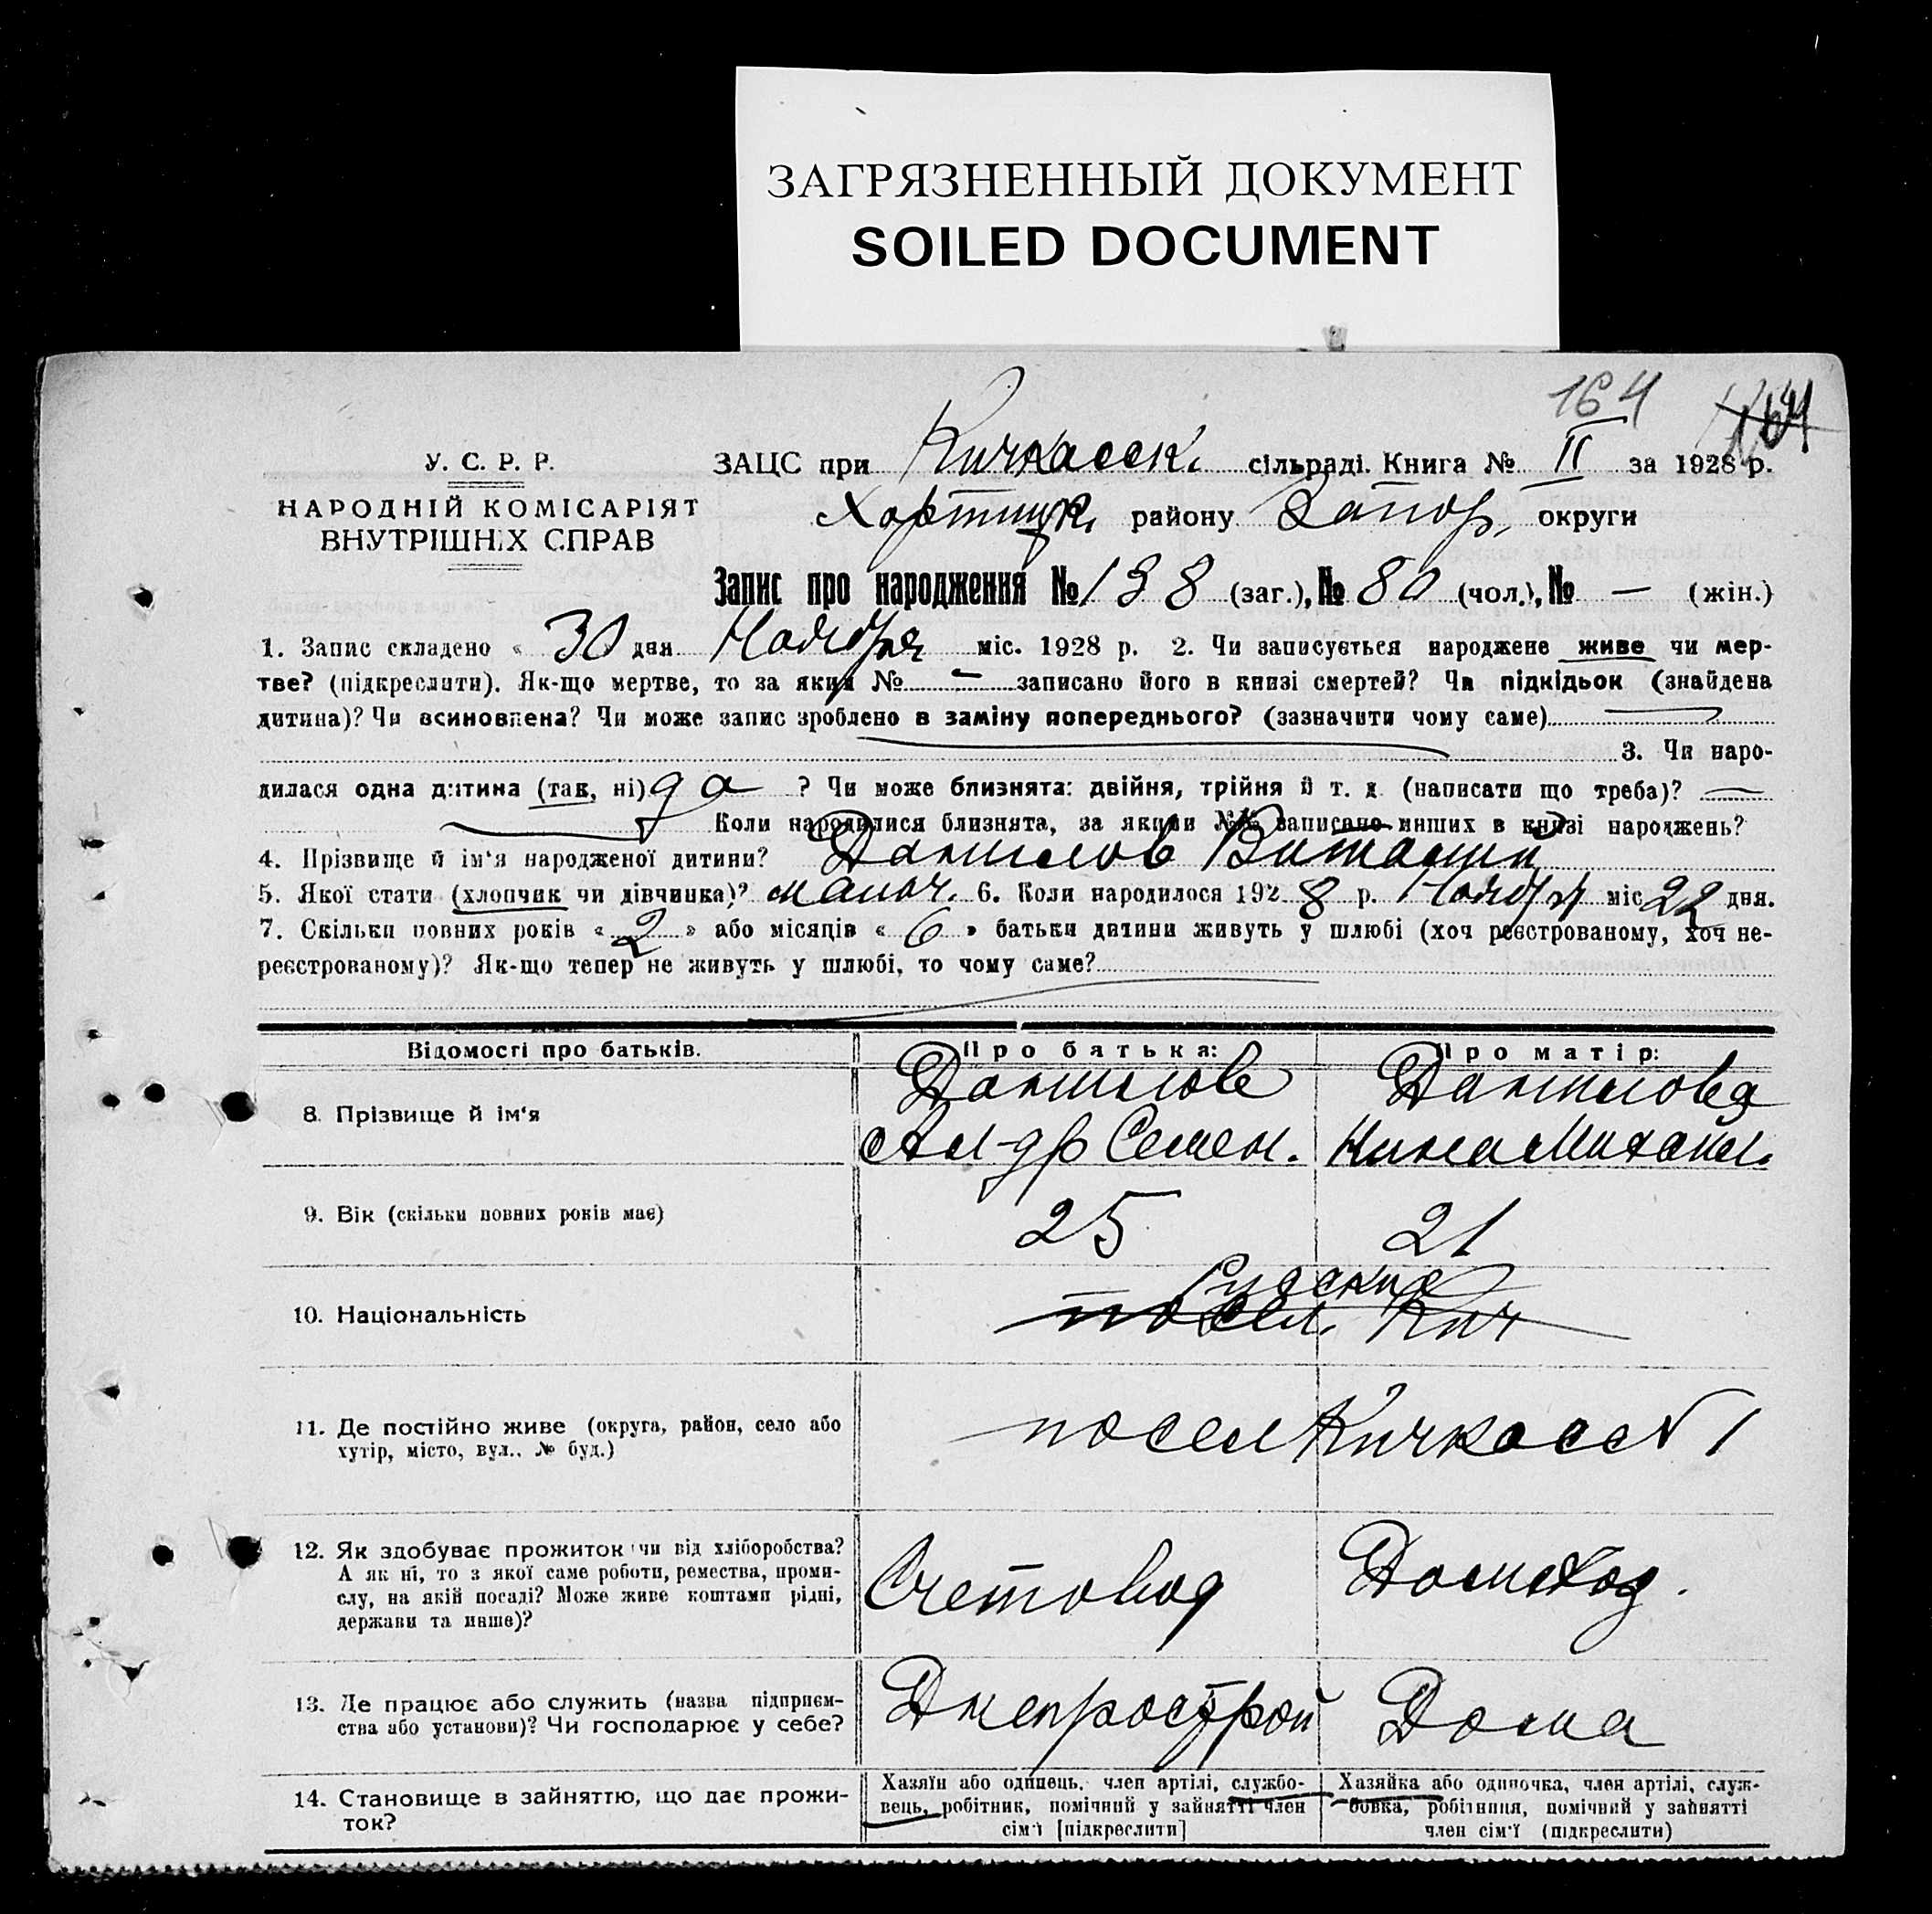 ЗАГРЯЗНЕННЫЙ ДОКУМЕНТ
SOILED DOCUMENT
164 164
У. С. Р. Р.
НАРОДНІЙ КОМІСАРІЯТ
ВНУТРІШНІХ СПРАВ
ЗАЦС при Кичкасск. сільраді. Книга № II за 1928 р.
Хортицк. району Запор. округи
Запис про народження № 138 (заг.), № 80 (чол.), № — (жін.)
1. Запис складено « 30 дня Ноября міс. 1928 р. 2. Чи записується народжене живе чи мер-
тве? (підкреслити). Як-що мертве, то за яким № — записано його в книзі смертей? Чи підкідьок (знайдена
дитина)? Чи всиновлена? Чи може запис зроблено в заміну попереднього? (зазначити чому саме) —
3. Чи наро-
дилася одна дитина (так, ні) да ? Чи може близнята: двійня, трійня й т. д. (написати що треба)? —
Коли народилися близнята, за якими №№ записано инших в книзі народжень?
4. Прізвище й ім'я народженої дитини? Данилов Виталий
5. Якої стати (хлопчик чи дівчинка)? мальч. 6. Коли народилося 1928 р. Ноября міс 22 дня.
7. Скільки повних років « 2 » або місяців « 6 » батьки дитини живуть у шлюбі (хоч реєстрованому, хоч не-
реєстрованому)? Як-що тепер не живуть у шлюбі, то чому саме?
Відомості про батьків. Про батька: Про матір:
8. Прізвище й ім'я
Данилов
Ал-др Семен.
Данилова
Нина Михайл.
9. Вік (скільки повних років має) 25 21
10. Національність
Русские
посел. Кич
11. Де постійно живе (округа, район, село або
хутір, місто, вул., № буд.)
посел Кичкасс № 1
12. Як здобуває прожиток чи від хліборобства?
А як ні, то з якої саме роботи, ремества, проми-
слу, на якій посаді? Може живе коштами рідні,
держави та инше)?
Счетовод
Домохоз.
13. Де працює або служить (назва підприєм-
ства або установи)? Чи господарює у себе?
Днепрострой
Дома
14. Становище в зайняттю, що дає прожи-
ток?
Хазяїн або одинець, член артілі, службо-
вець, робітник, помічний у зайнятті член
сім'ї [підкреслити]
Хазяйка або одиночка, член артілі, служ-
бовка, робітниця, помічний у зайнятті
член сім'ї (підкреслити)